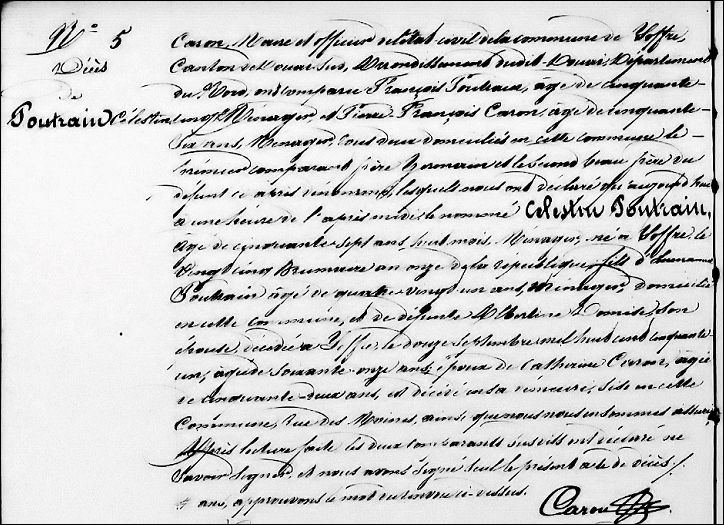 N° 5
Décès
de
Poutrain Célestin
Caron, Maire et officier de l'état-civil de la commune de Yoffre
Canton de Douai-Sud, Arrondissement dudit Douai, Département
du Nord, ont comparu François Poutrain, âgé de cinquante-
cinq ans Ménager, et Pierre François Caron, âgé de cinquante-
six ans, Ménager, tous deux domiciliés en cette commune le
premier comparant frère Germain et le second beau frère du
défunt ci après dénommé, lesquels nous ont déclaré qu'aujourd'hui
a une heure de l'après midi le nommé Célestin Poutrain,
âgé de cinquante sept ans, huit mois, Ménager, né à Yoffre, le
vingt cinq Brumaire an onze de la république, fils d'
Poutrain âgé de quatre-vingt un ans, Ménager, domicilié
en cette commune, et de défunte Albertine Domise, son
épouse, décédée à Yoffre, le douze Septembre mil huit cent cinquante
un, âgée de soixante-onze ans, époux de Catherine Caron, âgée
de cinquante-deux ans, est décédé en sa demeure, sise en cette
Commune, rue des Moines, ainsi que nous nous en sommes assuré.
Après lecture faite les deux comparants susdits ont déclaré ne
savoir signer, et nous avons signé seul le présent acte de décès /.
ans, approuvons le mot en renvoi ci-dessus.
Caron